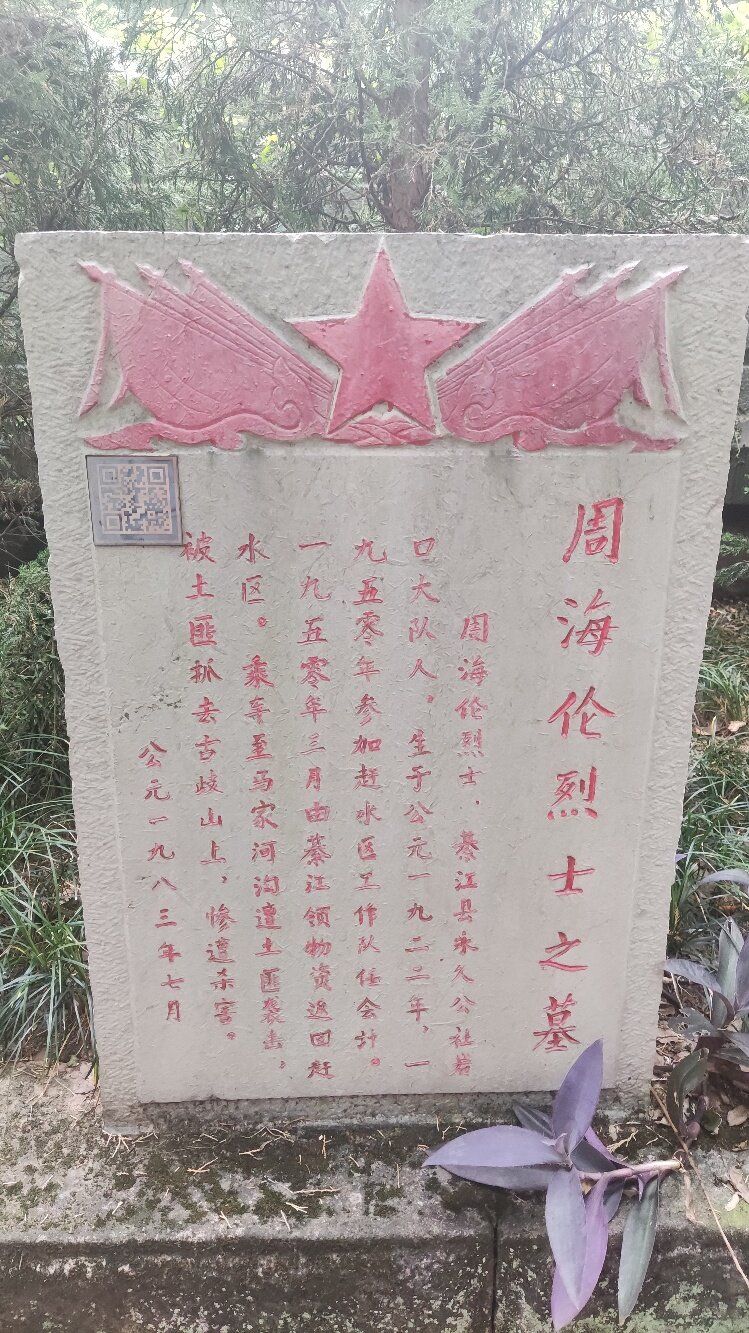 周海伦烈士之墓
周海伦烈士，綦江县永久公社岩
口大队人。生于公元一九二二年，一
九五零年参加赶水区工作队任会计。
一九五零年三月由綦江领物资返回赶
水区。乘车至马家河沟遭土匪袭击，
被土匪抓去古歧山上，惨遭杀害。
公元一九八三年七月